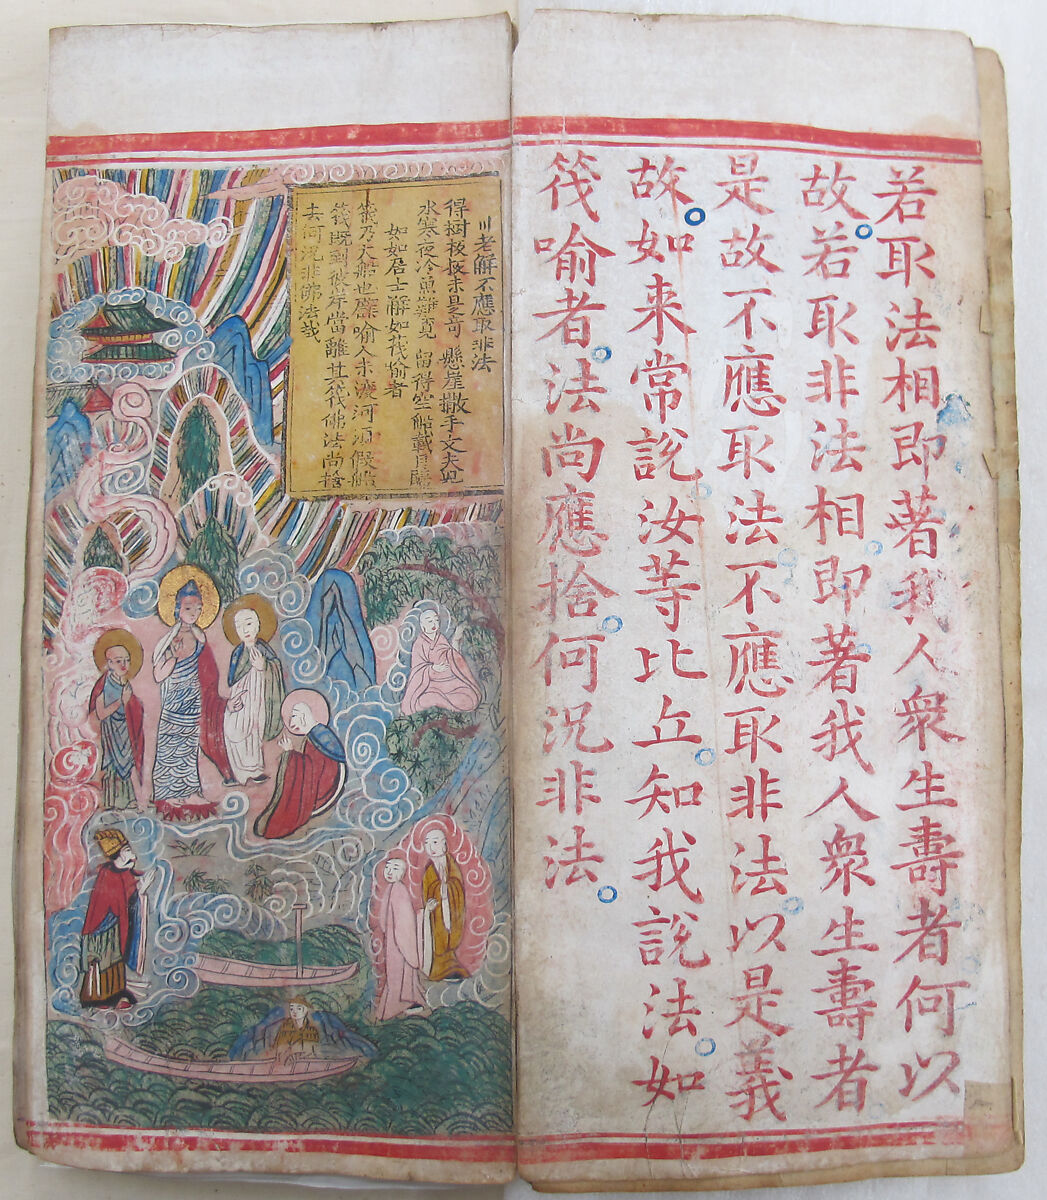 若取法相即著我人衆生壽者何以
故。若取非法相。即著我人衆生壽者
是故不應取法。不應取非法。以是義
故。如来常說。汝等比丘。知我說法。如
筏喻者。法尚應捨。何況非法。
川老解不應取非法
得樹未足奇 懸崖撒手丈夫兒
水寒夜冷魚難覓 留得空船載月歸
如如居士解如筏喻者
筏乃大船也譬喻人未渡河須假船
筏既到彼岸當離其筏佛法尚捨
去何況非佛法哉